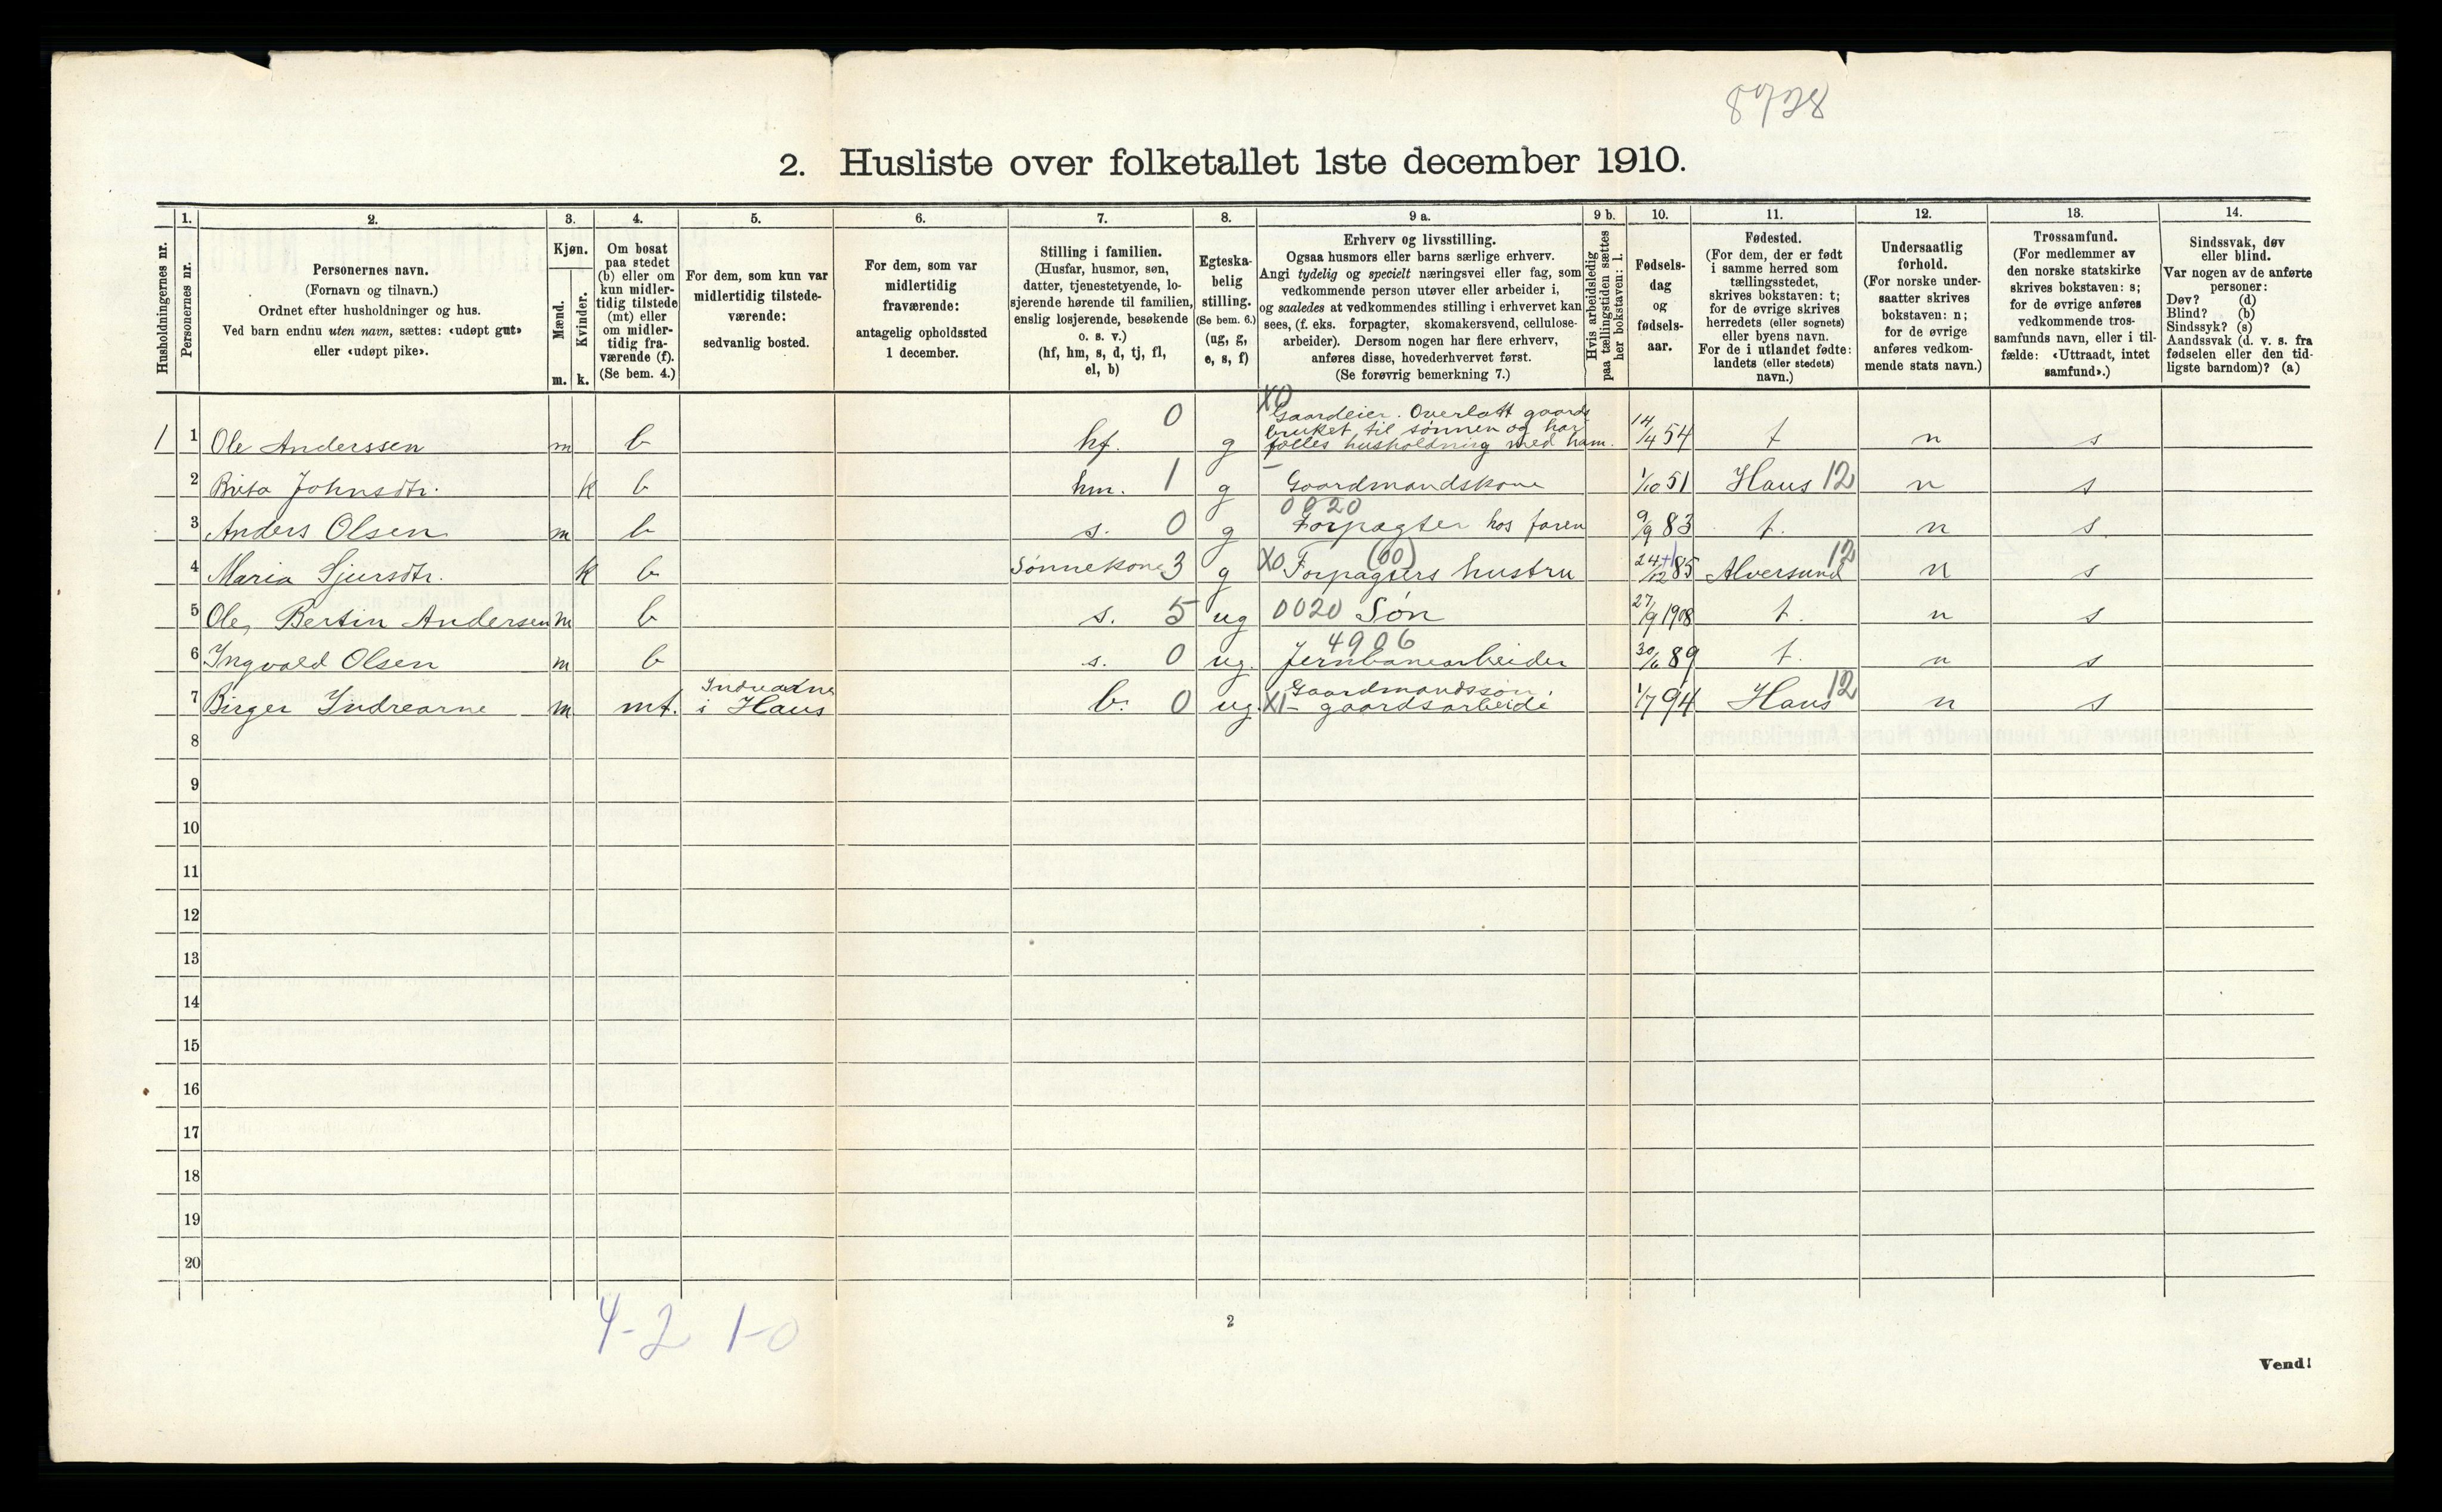 8728
2. Husliste over folketallet 1ste december 1910.
1. 2. 3. 4. 5. 6. 7. 8. 9 a. 9 b. 10. 11. 12. 13. 14.
Husholdningernes nr.
Personernes nr.
Personernes navn.
(Fornavn og tilnavn.)
Ordnet efter husholdninger og hus.
Ved barn endnu uten navn, sættes: «udøpt gut»
eller «udøpt pike».
Kjøn.
Mænd.
Kvinder.
m. k.
Om bosat
paa stedet
(b) eller om
kun midler-
tidig tilstede
(mt) eller
om midler-
tidig fra-
værende (f).
(Se bem. 4.)
For dem, som kun var
midlertidig tilstede-
værende:
sedvanlig bosted.
For dem, som var
midlertidig
fraværende:
antagelig opholdssted
1 december.
Stilling i familien.
(Husfar, husmor, søn,
datter, tjenestetyende, lo-
sjerende hørende til familien,
enslig losjerende, besøkende
o. s. v.)
(hf, hm, s, d, tj, fl,
el, b)
Egteska-
belig
stilling.
(Se bem. 6.)
(ug, g,
e, s, f)
Erhverv og livsstilling.
Ogsaa husmors eller barns særlige erhverv.
Angi tydelig og specielt næringsvei eller fag, som
vedkommende person utøver eller arbeider i,
og saaledes at vedkommendes stilling i erhvervet kan
sees, (f. eks. forpagter, skomakersvend, cellulose-
arbeider). Dersom nogen har flere erhverv,
anføres disse, hovederhvervet først.
(Se forøvrig bemerkning 7.)
Hvis arbeidsledig
paa tællingstiden sættes
her bokstaven: l.
Fødsels-
dag
og
fødsels-
aar.
Fødested.
(For dem, der er født
i samme herred som
tællingsstedet,
skrives bokstaven: t;
for de øvrige skrives
herredets (eller sognets)
eller byens navn.
For de i utlandet fødte:
landets (eller stedets)
navn.)
Undersaatlig
forhold.
(For norske under-
saatter skrives
bokstaven: n;
for de øvrige
anføres vedkom-
mende stats navn.)
Trossamfund.
(For medlemmer av
den norske statskirke
skrives bokstaven: s;
for de øvrige anføres
vedkommende tros-
samfunds navn, eller i til-
fælde: «Uttraadt, intet
samfund».)
Sindssvak, døv
eller blind.
Var nogen av de anførte
personer:
Døv? (d)
Blind? (b)
Sindssyk? (s)
Aandssvak (d. v. s. fra
fødselen eller den tid-
ligste barndom)? (a)
X0
Gaardeier. Overlatt gaards
bruket til sønnen og har
1 1 Ole Anderssen m b hf. 0 g fælles husholdning med ham. 14/4 54 t n s
2 Brita Johnsdtr. k b hm. 1 g - Gaardmandskone 1/10 51 Haus 12 n s
0020
3 Anders Olsen m b s. 0 g Forpagter hos faren 9/9 83 t. n s.
(00)
4 Maria Sjursdtr. k b Sønnekone 3 g X0 Forpagters hustru 24/12 85 Alversund 12 n s
5 Ole Bertin Andersen m b s. 5 ug 0020 Søn 27/9 1908 t. n s
4906
6 Ingvald Olsen m b s. 0 ug. Jernbanearbeider 30/6 89 t. n s
Indrearne Gaardmandssøn,
7 Birger Indrearne m mt. i Haus b. 0 ug. X1- gaardsarbeide 1/7 94 Haus 12 n s
8
9
10
11
12
13
14
15
16
17
18
19
20
4-2 1-0
2
Vend!